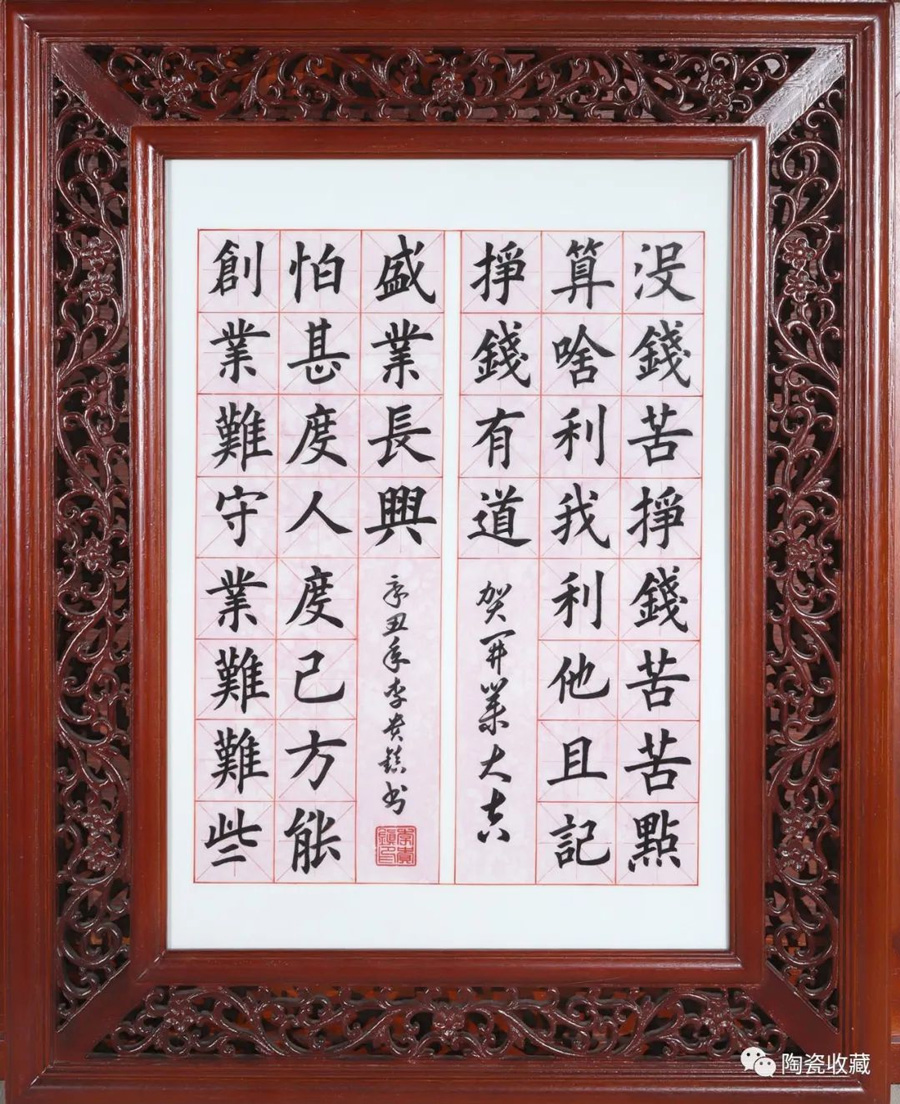 没錢苦掙錢苦苦點
算啥利我利他且記
掙錢有道
賀開業大吉
創業難守業難難些
怕甚度人度己方能
盛業長興
辛丑年李貴鎮書
李貴鎮印
陶瓷收藏